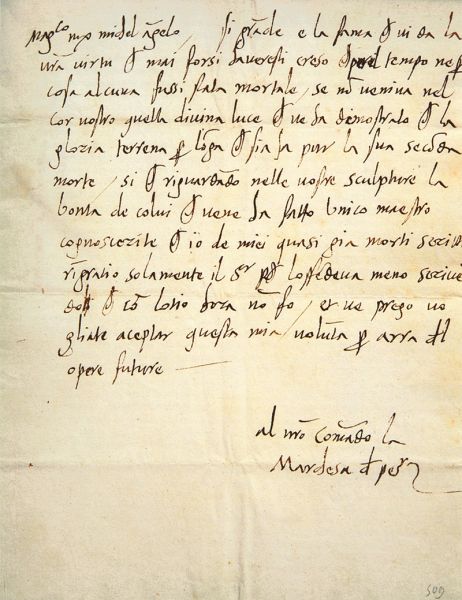 Mag.co m.o michel ãgelo / si grãde e la fama ꝙ vi da la
vr̃a virtu ꝙ mai forsi haveresti creso tempo ne ꝑ
cosa alcuna fussi stata mortale, se nõ veniva nel
cor vostro quella divina luce ꝙ ve ha demostrato ꝙ la
gloria terrena ꝑ lõga ꝙ sia ha pur la sua secõda
morte / si ꝙ riguardãdo nelle vostre sculpture la
bonta de colui ꝙ vene ha fatto unico maestro
cognoscerite ꝙ io de miei quasi gia morti scritti
rĩgratio solamente il S.r loffedeva meno scrivẽ
doli ꝙ cõ lotio hora nõ fo / et ve prego vo
gliate aceptar questa mia volũta ꝑ arra
opere future
al vr̃o comãdo la
Marchesa d pes.ra
509